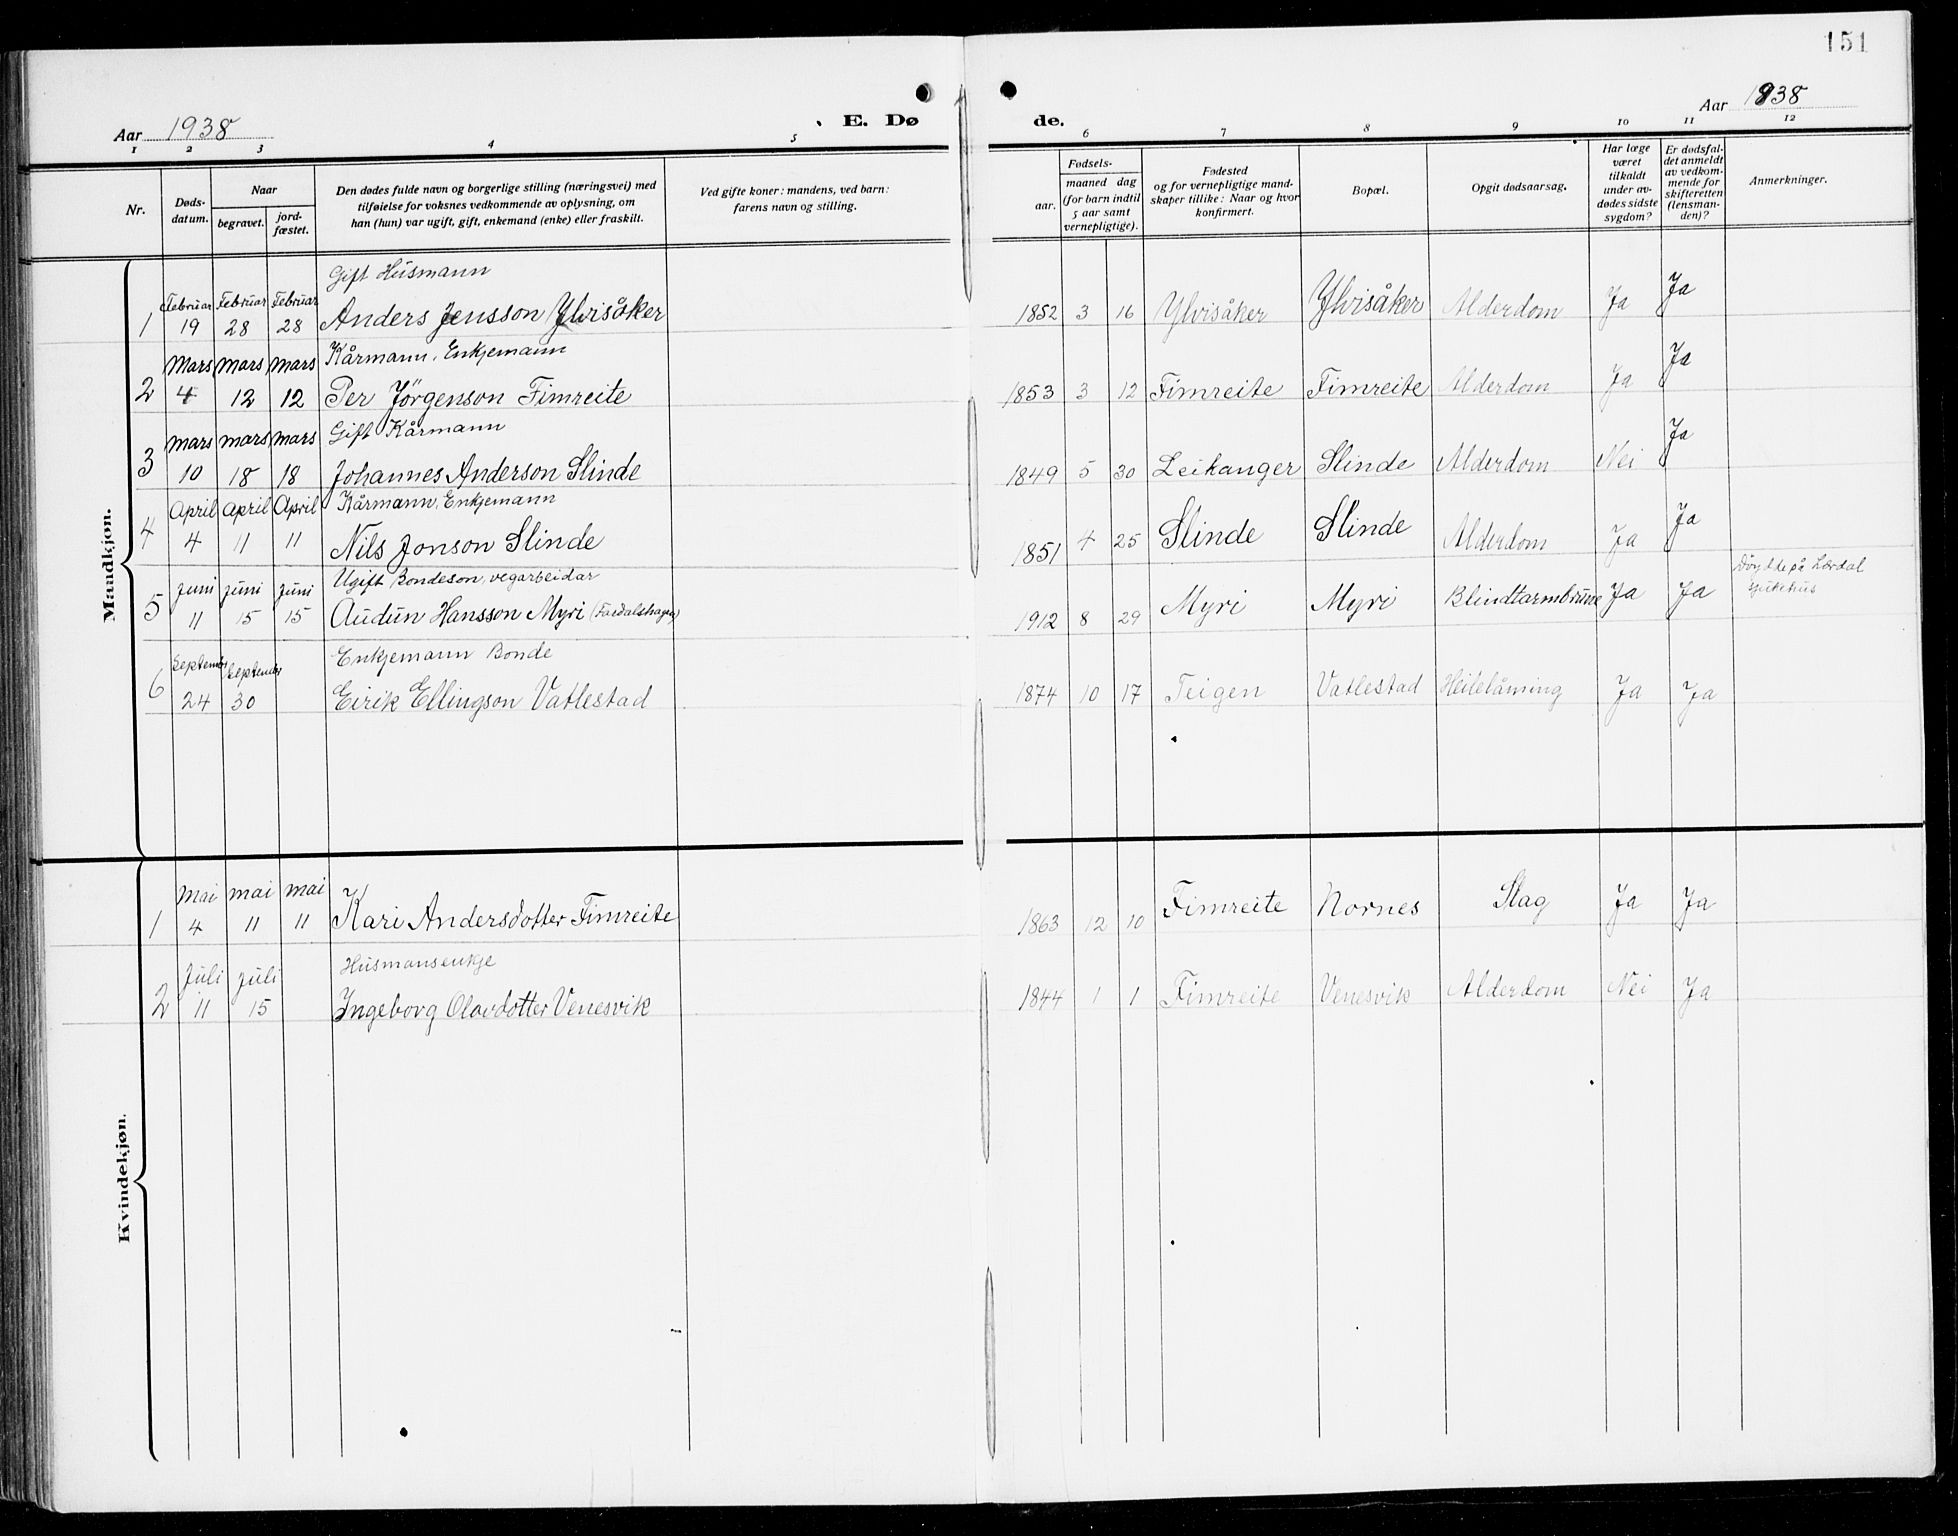 151
Aar 1938
E. Dø
de.
Aar 1938
1 2 3 4 5 6 7 8 9 10 11 12
Nr.
Døds-
datum.
Naar
begravet.
jord-
fæstet.
Den dødes fulde navn og borgerlige stilling (næringsvei) med
tilføielse for voksnes vedkommende av oplysning, om
han (hun) var ugift, gift, enkemand (enke) eller fraskilt.
Ved gifte koner: mandens, ved barn:
farens navn og stilling.
Fødsels-
aar.
maaned dag
(for barn indtil
5 aar samt
vernepligtige).
Fødested
og for vernepligtige mand-
skaper tillike: Naar og hvor
konfirmert.
Bopæl.
Opgit dødsaarsag.
Har læge
været
tilkaldt
under av-
dødes sidste
sygdom?
Er dødsfal-
det anmeldt
av vedkom-
mende for
skifteretten
(lensman-
den)?
Anmerkninger.
Maandkjøn.
Gift Husmann
Februar Februar Februar
1 19 28 28 Anders Jensson Ylvisåker 1852 3 16 Ylvisåker Ylvisåker Alderdom Ja Ja
Mars Mars Mars Kårmann, Enkjemann
2 4 12 12 Per Jörgenson Fimreite 1853 3 12 Fimreite Fimreite Alderdom Ja Ja
Mars Mars Mars Gift Kårmann
3 10 18 18 Johannes Anderson Slinde 1849 5 30 Leikanger Slinde Alderdom Nei Ja
April April April Kårmann, Enkjemann
4 4 11 11 Nils Jonson Slinde 1851 4 25 Slinde Slinde Alderdom Ja Ja
Juni Juni Juni Ugift Bondeson, vegarbeidar
5 11 15 15 Audun Hansson Myri 1912 8 29 Myri Myri Blindtarmbrune Ja Ja Döydde på Lærdal
sjukehus
September September Enkjemann Bonde
6 24 30 Eirik Ellingson Vatlestad 1874 10 17 Teigen Vatlestad Heilelåming Ja Ja
Kvindekjøn.
Mai Mai Mai
1 4 11 11 Kari Andersdotter Fimreite 1863 12 10 Fimreite Nornes Slag Ja Ja
Juli Juli Husmansenkje
2 11 15 Ingeborg Olavdotter Venesvik 1844 1 1 Fimreite Venesvik Alderdom Nei Ja